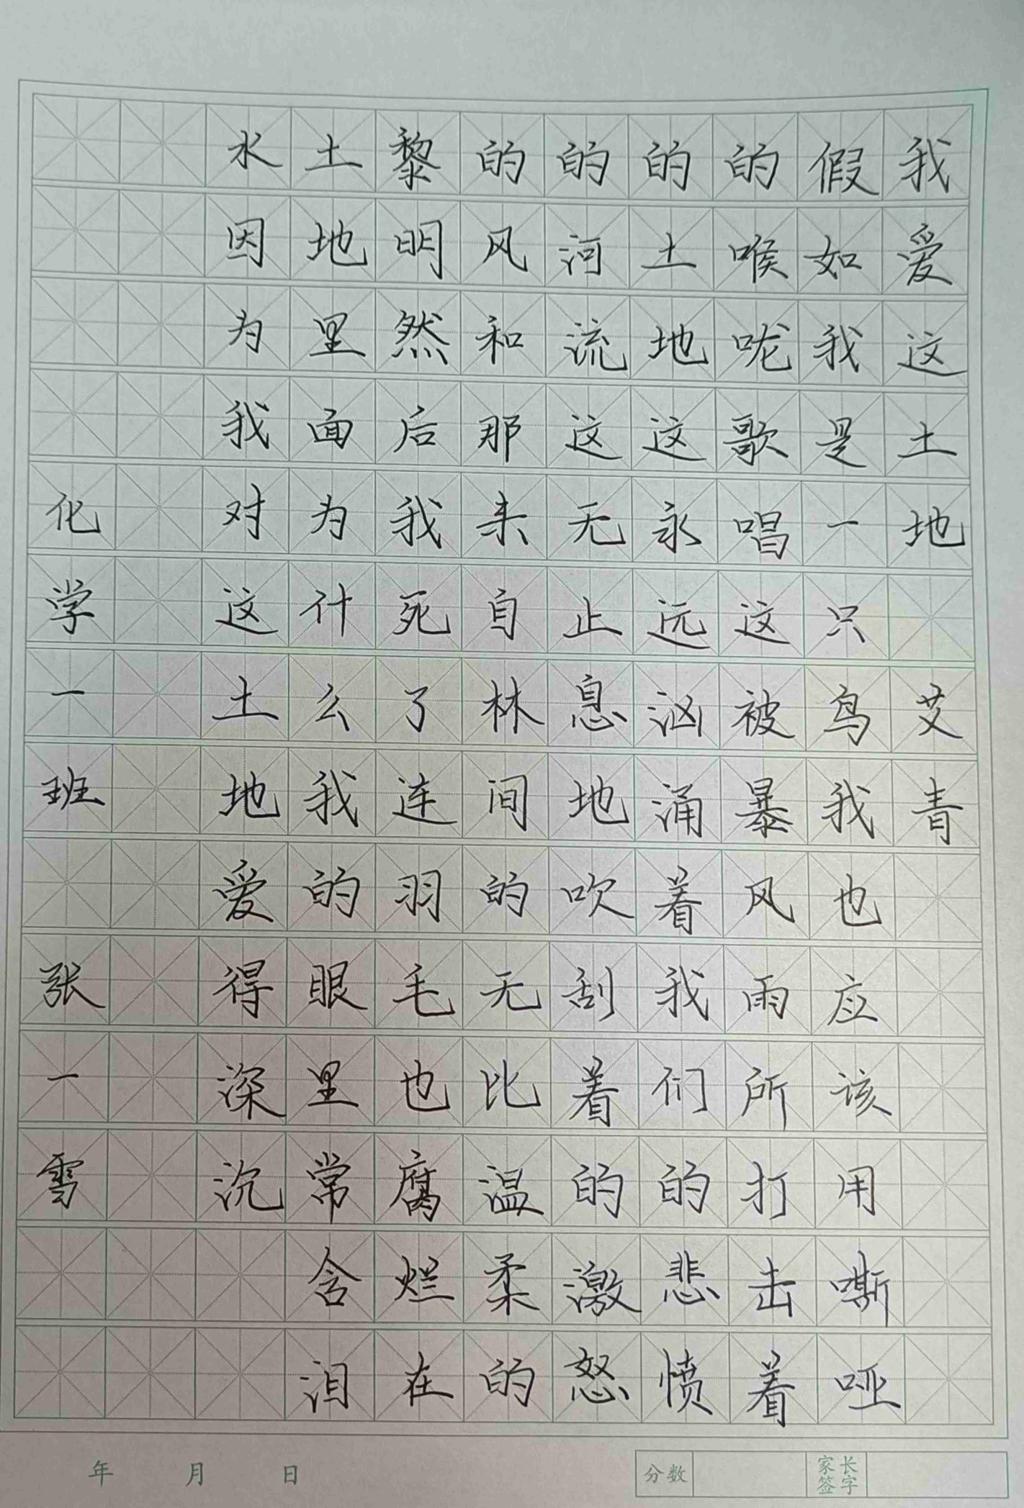 我爱这土地 艾青
假如我是一只鸟我也应该用嘶哑
的喉咙歌唱这被暴风雨所打击着
的土地这永远汹涌着我们的悲愤
的河流这无止息地吹刮着的激怒
的风和那来自林间的无比温柔的
黎明然后我死了连羽毛也腐烂在
土地里面为什么我的眼里常含泪
水因为我对这土地爱得深沉
化学一班 张一雪
年 月 日
分数
家长签字